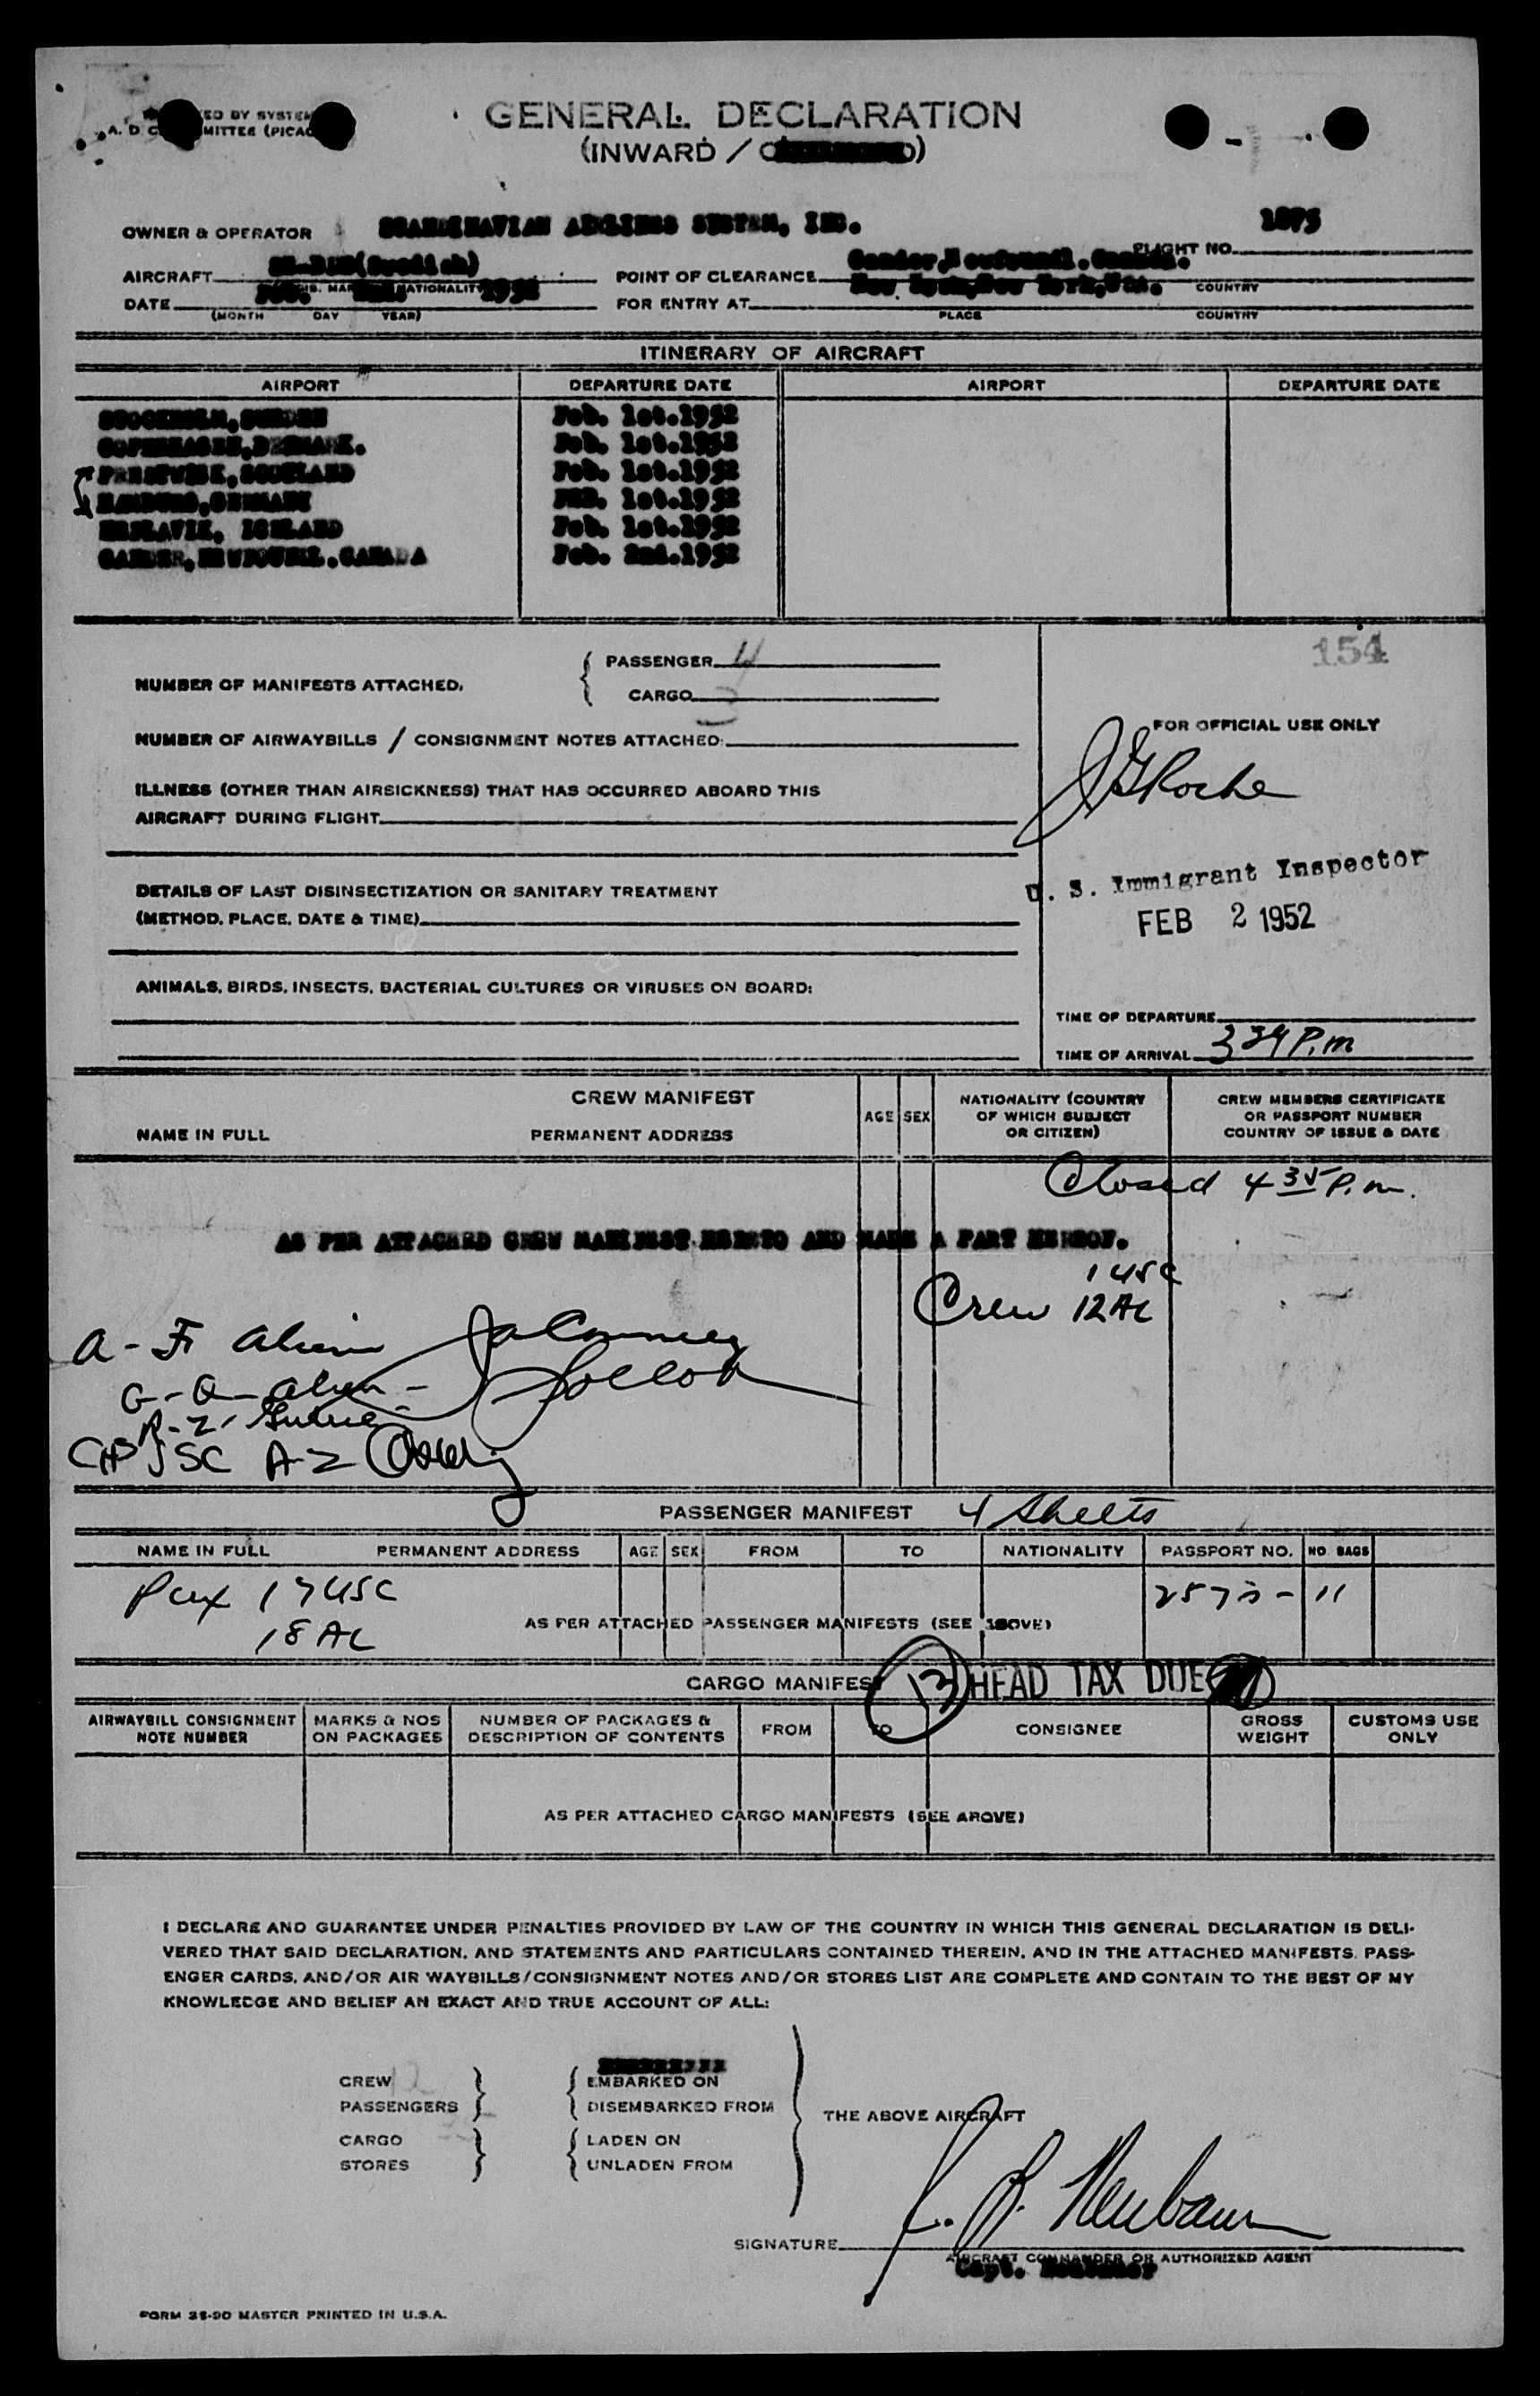 ED BY SYSTEM
A. D. C. MITTEE (PICAO
GENERAL DECLARATION
(INWARD /
OWNER & OPERATOR SCANDINAVIAN AIRLINES SYSTEM, INC.
FLIGHT NO.
AIRCRAFT (Swedish) POINT OF CLEARANCE Gander, Newfoundl. Canada.
MARKS NATIONALITY COUNTRY
DATE Feb. 1952 FOR ENTRY AT New York, New York, USA.
(MONTH DAY YEAR) PLACE COUNTRY
ITINERARY OF AIRCRAFT
AIRPORT DEPARTURE DATE AIRPORT DEPARTURE DATE
STOCKHOLM, SWEDEN Feb. 1st.1952
COPENHAGEN, DENMARK. Feb. 1st.1952
PRESTWICK, SCOTLAND Feb. 1st.1952
HAMBURG, GERMANY FEB. 1st.1952
KEFLAVIK, ICELAND Feb. 1st.1952
GANDER, NEWFOUNDL. CANADA Feb. 2nd.1952
154
NUMBER OF MANIFESTS ATTACHED. { PASSENGER 4
CARGO
FOR OFFICIAL USE ONLY
NUMBER OF AIRWAYBILLS / CONSIGNMENT NOTES ATTACHED:
JG Roche
ILLNESS (OTHER THAN AIRSICKNESS) THAT HAS OCCURRED ABOARD THIS
AIRCRAFT DURING FLIGHT
U. S. Immigrant Inspector
FEB 2 1952
DETAILS OF LAST DISINSECTIZATION OR SANITARY TREATMENT
(METHOD, PLACE, DATE & TIME)
ANIMALS, BIRDS, INSECTS, BACTERIAL CULTURES OR VIRUSES ON BOARD:
TIME OF DEPARTURE
TIME OF ARRIVAL 334 P.m
CREW MANIFEST
NAME IN FULL PERMANENT ADDRESS AGE SEX NATIONALITY (COUNTRY OF WHICH SUBJECT OR CITIZEN) CREW MEMBERS CERTIFICATE OR PASSPORT NUMBER COUNTRY OF ISSUE & DATE
Closed 4 35 P.m.
AS PER ATTACHED CREW MANIFEST HERETO AND MADE A PART HEREOF.
1 USC
Crew 12 AL
PASSENGER MANIFEST 4 Sheets
NAME IN FULL PERMANENT ADDRESS AGE SEX FROM TO NATIONALITY PASSPORT NO. NO. BAGS
Pax 17 USC
18 AL
AS PER ATTACHED PASSENGER MANIFESTS (SEE ABOVE)
CARGO MANIFEST 13 HEAD TAX DUE
AIRWAYBILL CONSIGNMENT NOTE NUMBER MARKS & NOS ON PACKAGES NUMBER OF PACKAGES & DESCRIPTION OF CONTENTS FROM TO CONSIGNEE GROSS WEIGHT CUSTOMS USE ONLY
AS PER ATTACHED CARGO MANIFESTS (SEE ABOVE)
I DECLARE AND GUARANTEE UNDER PENALTIES PROVIDED BY LAW OF THE COUNTRY IN WHICH THIS GENERAL DECLARATION IS DELI-
VERED THAT SAID DECLARATION, AND STATEMENTS AND PARTICULARS CONTAINED THEREIN, AND IN THE ATTACHED MANIFESTS, PASS-
ENGER CARDS, AND/OR AIR WAYBILLS/CONSIGNMENT NOTES AND/OR STORES LIST ARE COMPLETE AND CONTAIN TO THE BEST OF MY
KNOWLEDGE AND BELIEF AN EXACT AND TRUE ACCOUNT OF ALL:
CREW 12 EMBARKED ON
PASSENGERS DISEMBARKED FROM
THE ABOVE AIRCRAFT
CARGO LADEN ON
STORES UNLADEN FROM
SIGNATURE
AIRCRAFT COMMANDER OR AUTHORIZED AGENT
Capt.
FORM 35-9D MASTER PRINTED IN U.S.A.